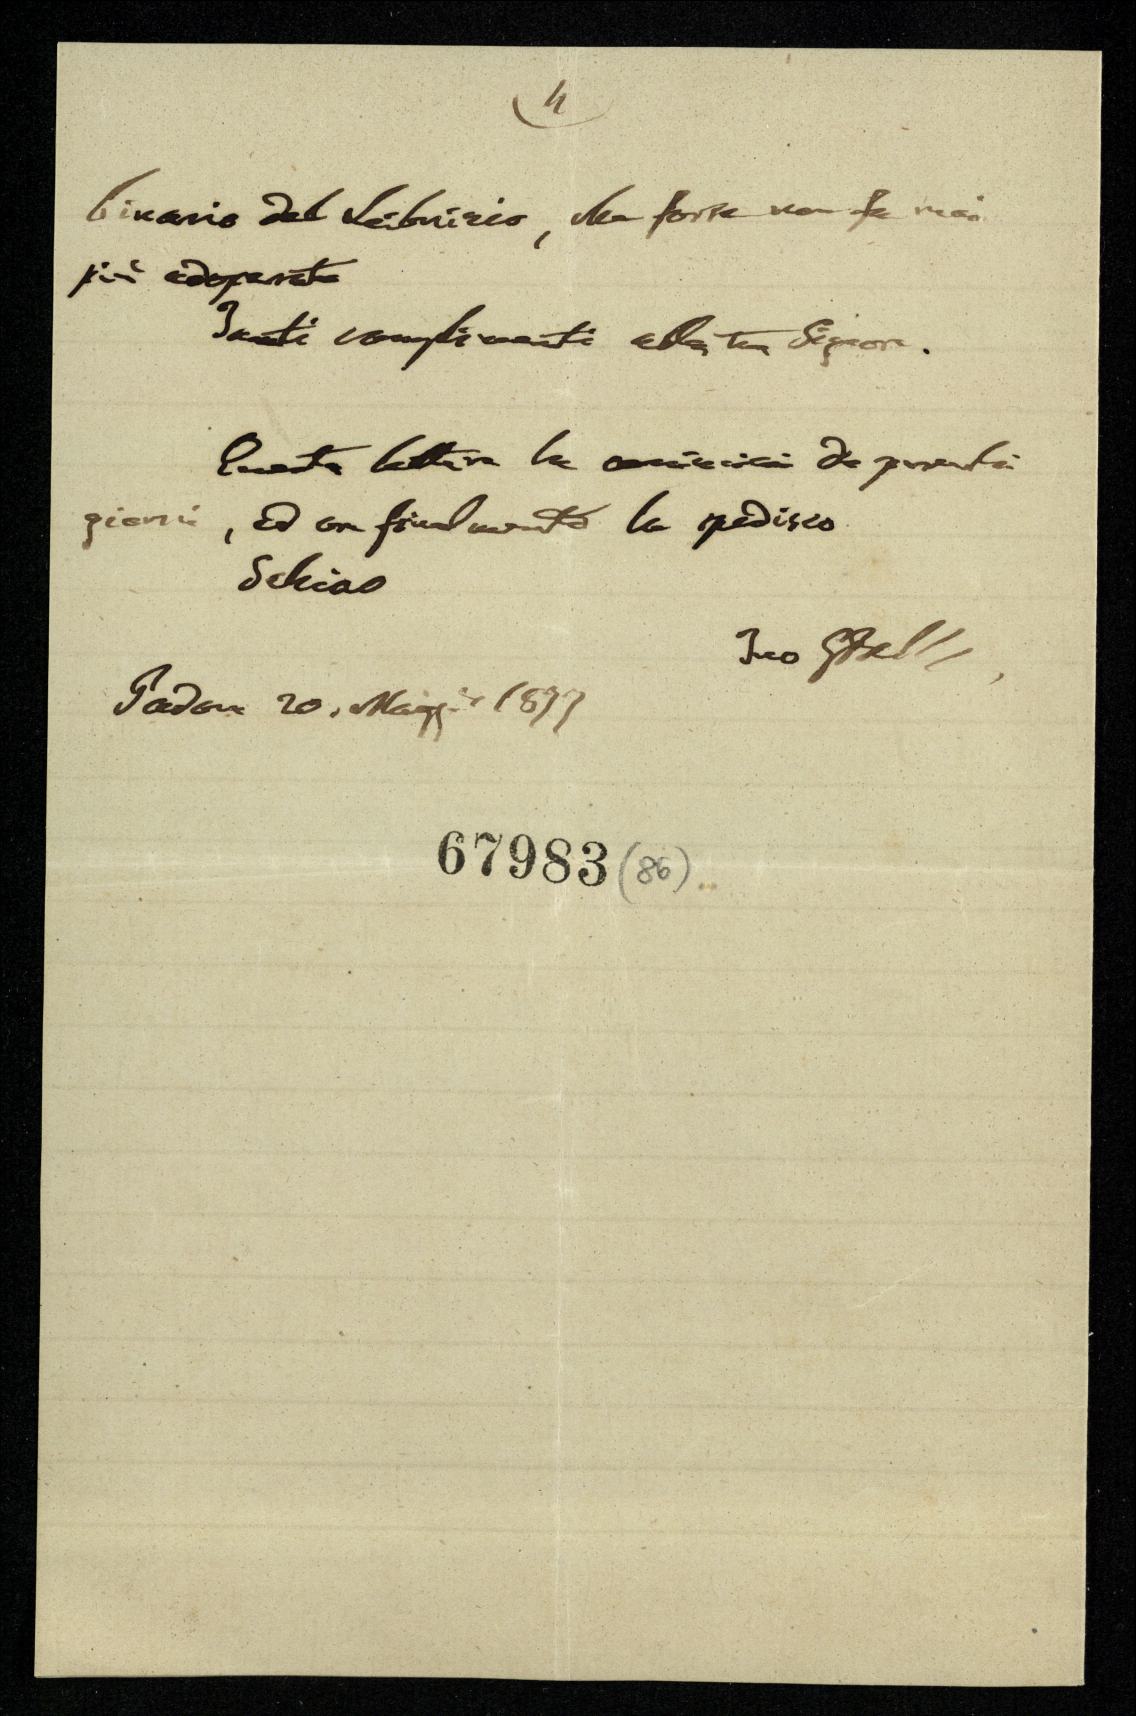 4
binario del Leibnizio, che forse non fu mai
più adoperato
Tanti complimenti alla tua Signora.
Questa lettera la cominciai da parecchi
giorni, ed ora finalmente la spedisco
Schiao
Tuo
Padova 20. Maggio
67983 (86)